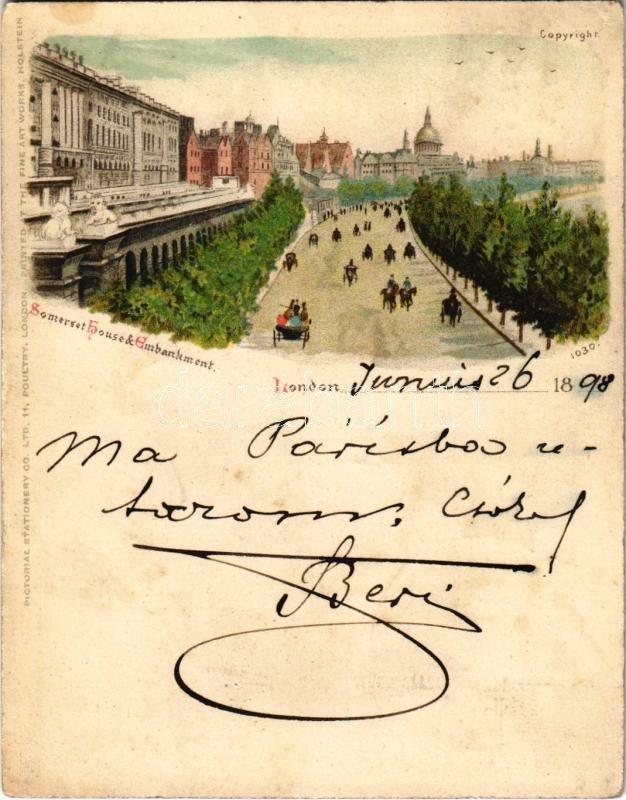 Copyright.
PICTORIAL STATIONERY CO. LTD., 11, POULTRY, LONDON. PRINTED AT THE FINE ART WORKS, HOLSTEIN
Somerset House & Embankment.
1030.
London Junius 26 1898
darabanth
Ma Párisba u-
tazom. Csókol
Beri